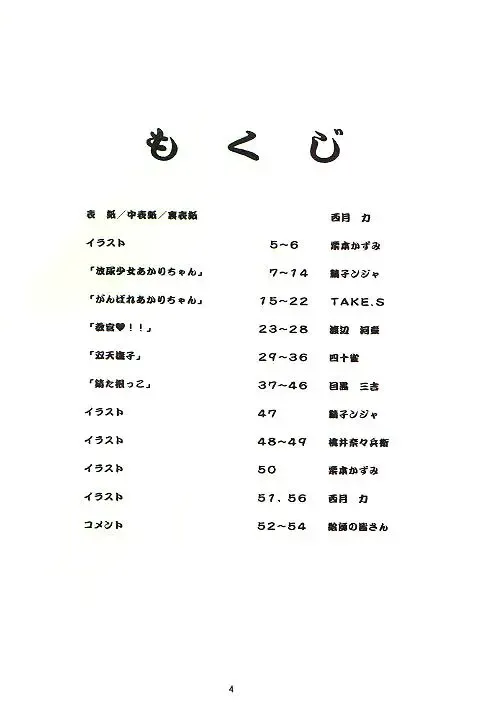 もくじ
表 紙／中表紙／裏表紙 西月 力
イラスト 5～6 栗本かずみ
「放尿少女あかりちゃん」 7～14 鯱子ンジャ
「がんばれあかりちゃん」 15～22 TAKE.S
「教官♥！！」 23～28 渡辺
「双天撫子」 29～36 四十雀
「 た根っこ」 37～46 目黒 三吉
イラスト 47 子ンジャ
イラスト 48～49 桃井奈々兵衛
イラスト 50 栗本かずみ
イラスト 51、56 西月 力
コメント 52～54 絵師の皆さん
4